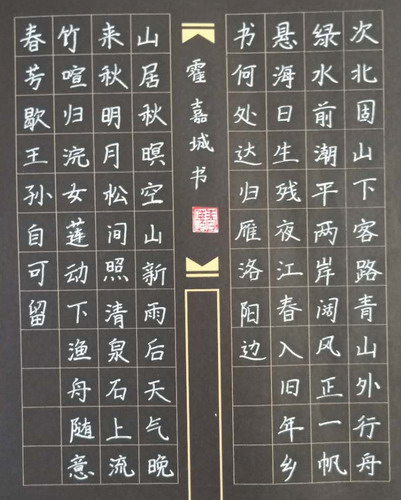 次北固山下客路青山外行舟
绿水前潮平两岸阔风正一帆
悬海日生残夜江春入旧年乡
书何处达归雁洛阳边
霍嘉城书
山居秋暝空山新雨后天气晚
来秋明月松间照清泉石上流
竹喧归浣女莲动下渔舟随意
春芳歇王孙自可留